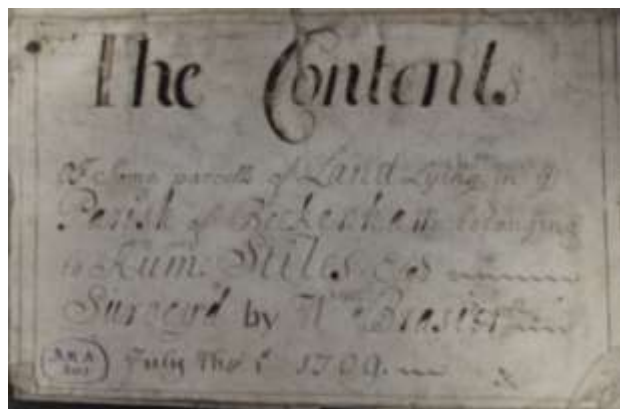 The Contents
Of Some parcells of Land Lying in ye
Parish of Beckenham belonging
to Hum: Stiles Esq
Survey'd by Wm Brasier
July The 1st 1709.